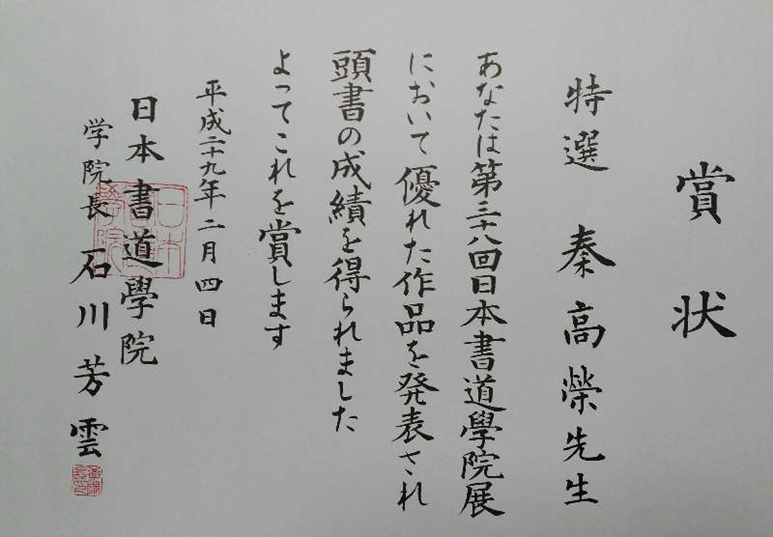 賞状
特選　秦高榮先生
あなたは第三十八回日本書道學院展
において優れた作品を発表され
頭書の成績を得られました
よってこれを賞します
平成二十九年二月四日
日本書道學院
学院長 石川芳雲
日本書道學院